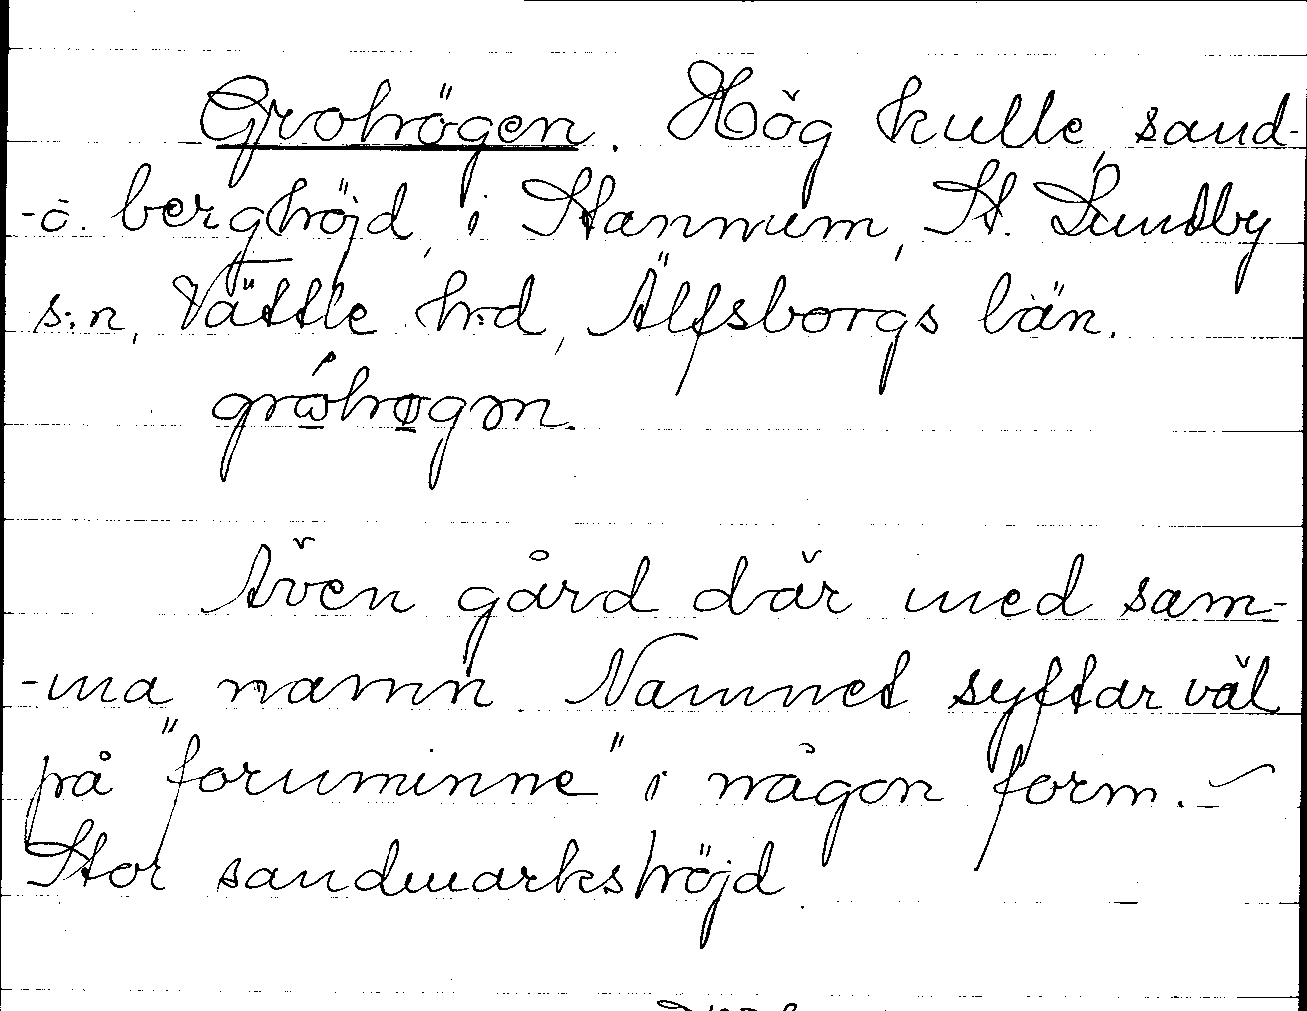 Grohögen. Hög kulle, sand-
-o. berghöjd, i Stannum, St. Lundby
s:n, Vättle h:d, Älfsborgs län.
Även gård där med sam-
-ma namn. Namnet syftar väl
på "foruminne" i någon form. –
Stor sandmarkshöjd.